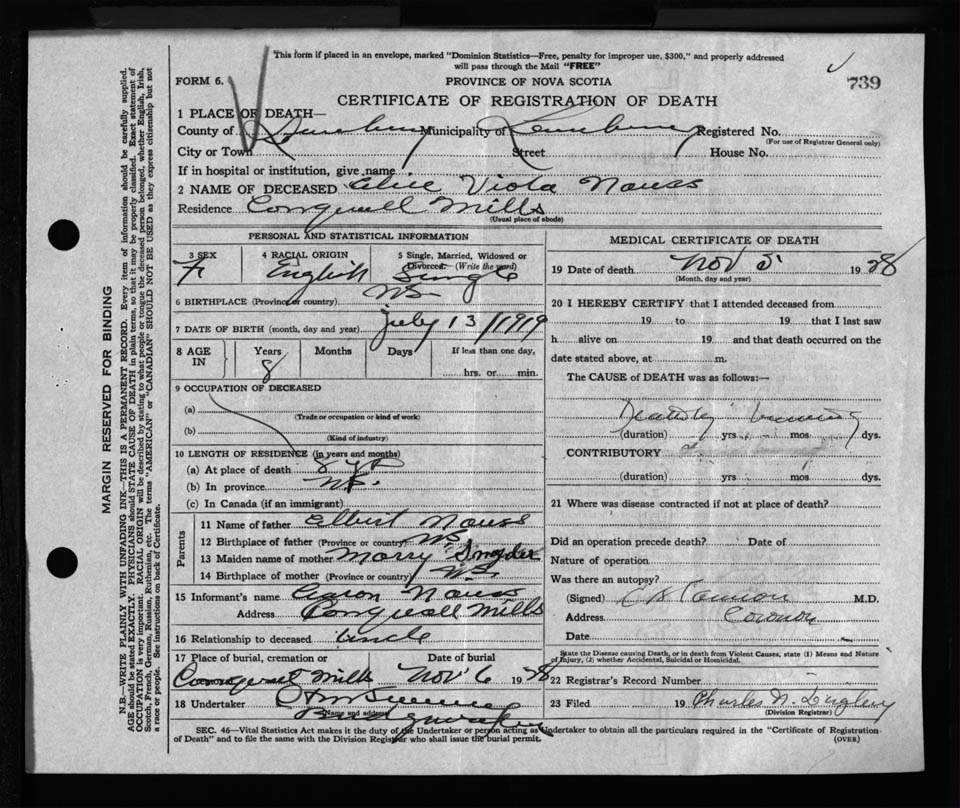 This form if placed in an envelope, marked "Dominion Statistics—Free, penalty for improper use, $300," and properly addressed
will pass through the Mail "FREE"
FORM 6. PROVINCE OF NOVA SCOTIA 739
CERTIFICATE OF REGISTRATION OF DEATH
1 PLACE OF DEATH—
County of Municipality of Registered No.
(For use of Registrar General only)
City or Town Street House No.
If in hospital or institution, give name
2 NAME OF DECEASED Viola Nauss
Residence Mills
(Usual place of abode)
PERSONAL AND STATISTICAL INFORMATION
3 SEX 4 RACIAL ORIGIN 5 Single, Married, Widowed or
Divorced. (Write the word)
F English Single
6 BIRTHPLACE (Province or country) NS
7 DATE OF BIRTH (month, day and year) July 13/1919
8 AGE IN Years Months Days If less than one day,
8 hrs. or min.
9 OCCUPATION OF DECEASED
(a)
(Trade or occupation or kind of work)
(b)
(Kind of industry)
10 LENGTH OF RESIDENCE (in years and months)
(a) At place of death 8
(b) In province NS.
(c) In Canada (if an immigrant)
Parents
11 Name of father Elbert Nauss
12 Birthplace of father (Province or country) NS
13 Maiden name of mother
14 Birthplace of mother (Province or country) NS.
15 Informant's name Nauss
Address Mills
16 Relationship to deceased Uncle
17 Place of burial, cremation or Date of burial
Mills Nov 6 1928
18 Undertaker
Name and address
MEDICAL CERTIFICATE OF DEATH
19 Date of death Nov 5 1928
(Month, day and year)
20 I HEREBY CERTIFY that I attended deceased from
19 to 19 that I last saw
h alive on 19 and that death occurred on the
date stated above, at m.
The CAUSE of DEATH was as follows:—
Death by
(duration) yrs mos dys.
CONTRIBUTORY
(duration) yrs mos dys.
21 Where was disease contracted if not at place of death?
Did an operation precede death? Date of
Nature of operation
Was there an autopsy?
(Signed) M.D.
Address Coroner
Date
State the Disease causing Death, or in death from Violent Causes, state (1) Means and Nature
of Injury, (2) whether Accidental, Suicidal or Homicidal.
22 Registrar's Record Number
23 Filed 19 Charles
(Division Registrar)
SEC. 46—Vital Statistics Act makes it the duty of the Undertaker or person acting as Undertaker to obtain all the particulars required in the "Certificate of Registration
of Death" and to file the same with the Division Registrar who shall issue the burial permit. (OVER)
MARGIN RESERVED FOR BINDING
N.B.—WRITE PLAINLY WITH UNFADING INK—THIS IS A PERMANENT RECORD. Every item of information should be carefully supplied.
AGE should be stated EXACTLY. PHYSICIANS should STATE CAUSE OF DEATH in plain terms, so that it may be properly classified. Exact statement of
OCCUPATION is very important. RACIAL ORIGIN will be described by stating to what people or tongue the deceased person belonged, whether English, Irish,
Scotch, French, German, Russian, Ruthenian, etc. The terms "AMERICAN" or "CANADIAN" SHOULD NOT BE USED as they express citizenship but not
a race or people. See instructions on back of Certificate.